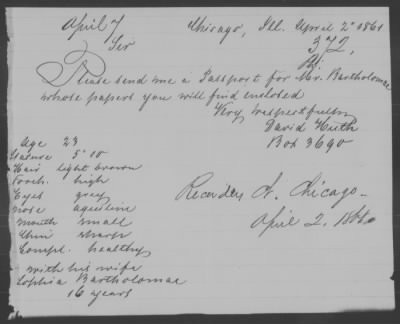 April 7
Chicago, Ill. April 2d 1861
Sir
372,
Please send me a Passport for Mr. Bartholomae
whose papers you will find enclosed
Very respectfully
David Huth
Box 3690
Age 23
Stature 5" 10
Hair light brown
Foreh. high
Eyes grey
nose aquiline
mouth small
Chin sharp
Compl. healthy
with his wife
Sophia Bartholomae
16 years
Chicago
April 2, 1861